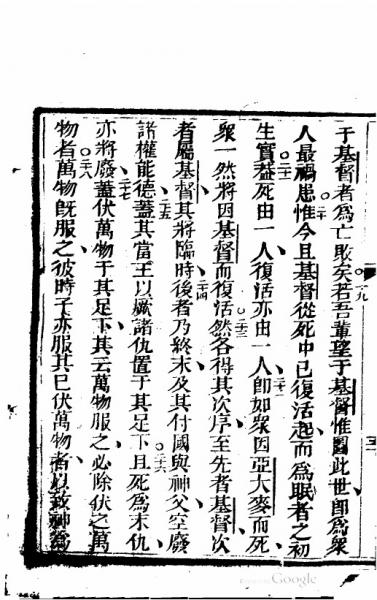 于基督者為亡敗矣若吾輩望于基督惟圖此世即為衆
一九
人最禍患惟今且基督從死中已復活起而為眠者之初
二十
二一
生實葢死由一人復活亦由一人即如衆因亞大麥而死
二二
衆一然將因基督而復活然各得其次序至先者基督次
二三
者屬基督其將臨時後者乃終末及其付國與神父空廢
二四
諸權能德蓋其當王以厥諸仇置于其足下且死為末仇
二五
二六
亦將廢蓋伏萬物于其足下其云萬物服之必除伏之萬
二七
物者萬物既服之彼時子亦服其已伏萬物者以致神為
二八
Google